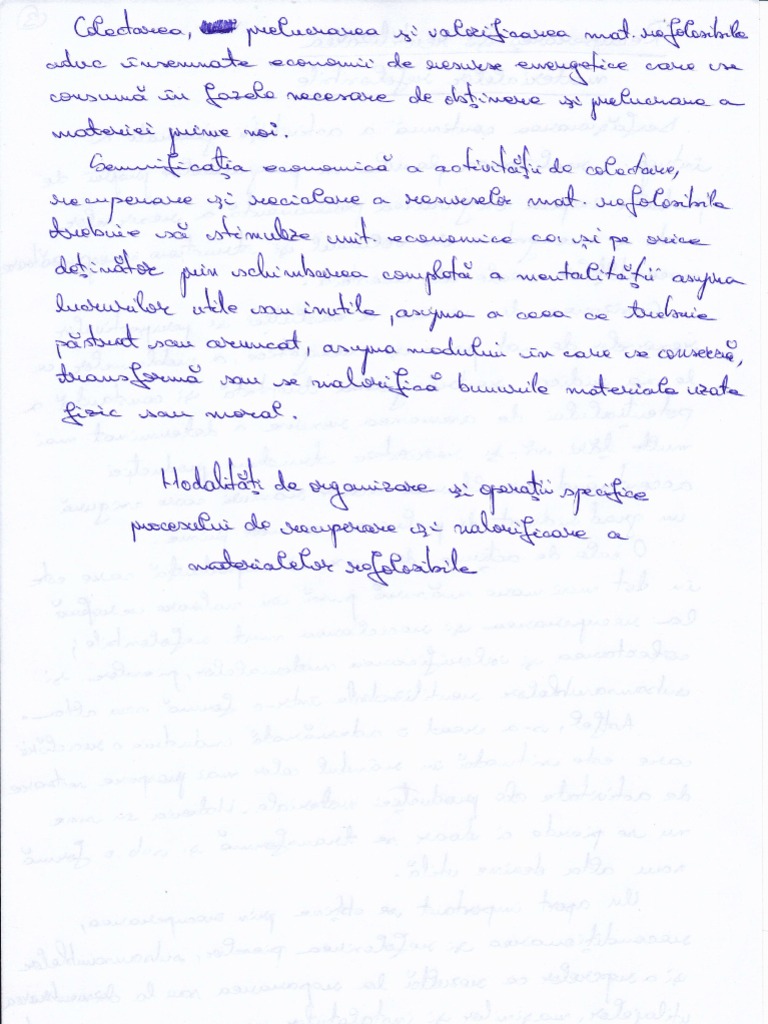 Colectarea, prelucrarea și valorificarea mat. refolosibile
aduc însemnate economii de resurse energetice care se
consumă în fazele necesare de obținere și prelucrare a
materiei prime noi.
Semnificația economică a activității de colectare,
recuperare și reciclare a resurselor mat. refolosibile
trebuie să stimuleze unit. economice ca și pe orice
deținător prin schimbarea completă a mentalității asupra
lucrurilor utile sau inutile, asupra a ceea ce trebuie
păstrat sau aruncat, asupra modului în care se conservă,
transformă sau se valorifică bunurile materiale uzate
fizic sau moral.
Modalități de organizare și operații specifice
procesului de recuperare și valorificare a
materialelor refolosibile